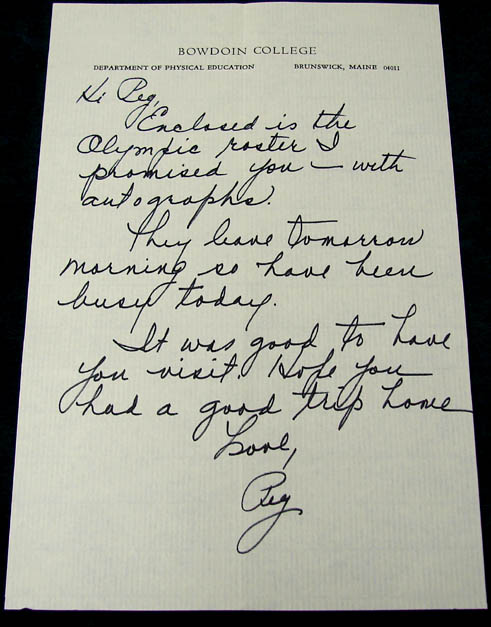 BOWDOIN COLLEGE
DEPARTMENT OF PHYSICAL EDUCATION BRUNSWICK, MAINE 04011
Hi Peg,
Enclosed is the
Olympic roster I
promised you – with
autographs.
They leave tomorrow
morning so have been
busy today.
It was good to have
you visit. Hope you
had a good trip home
Love,
Peg